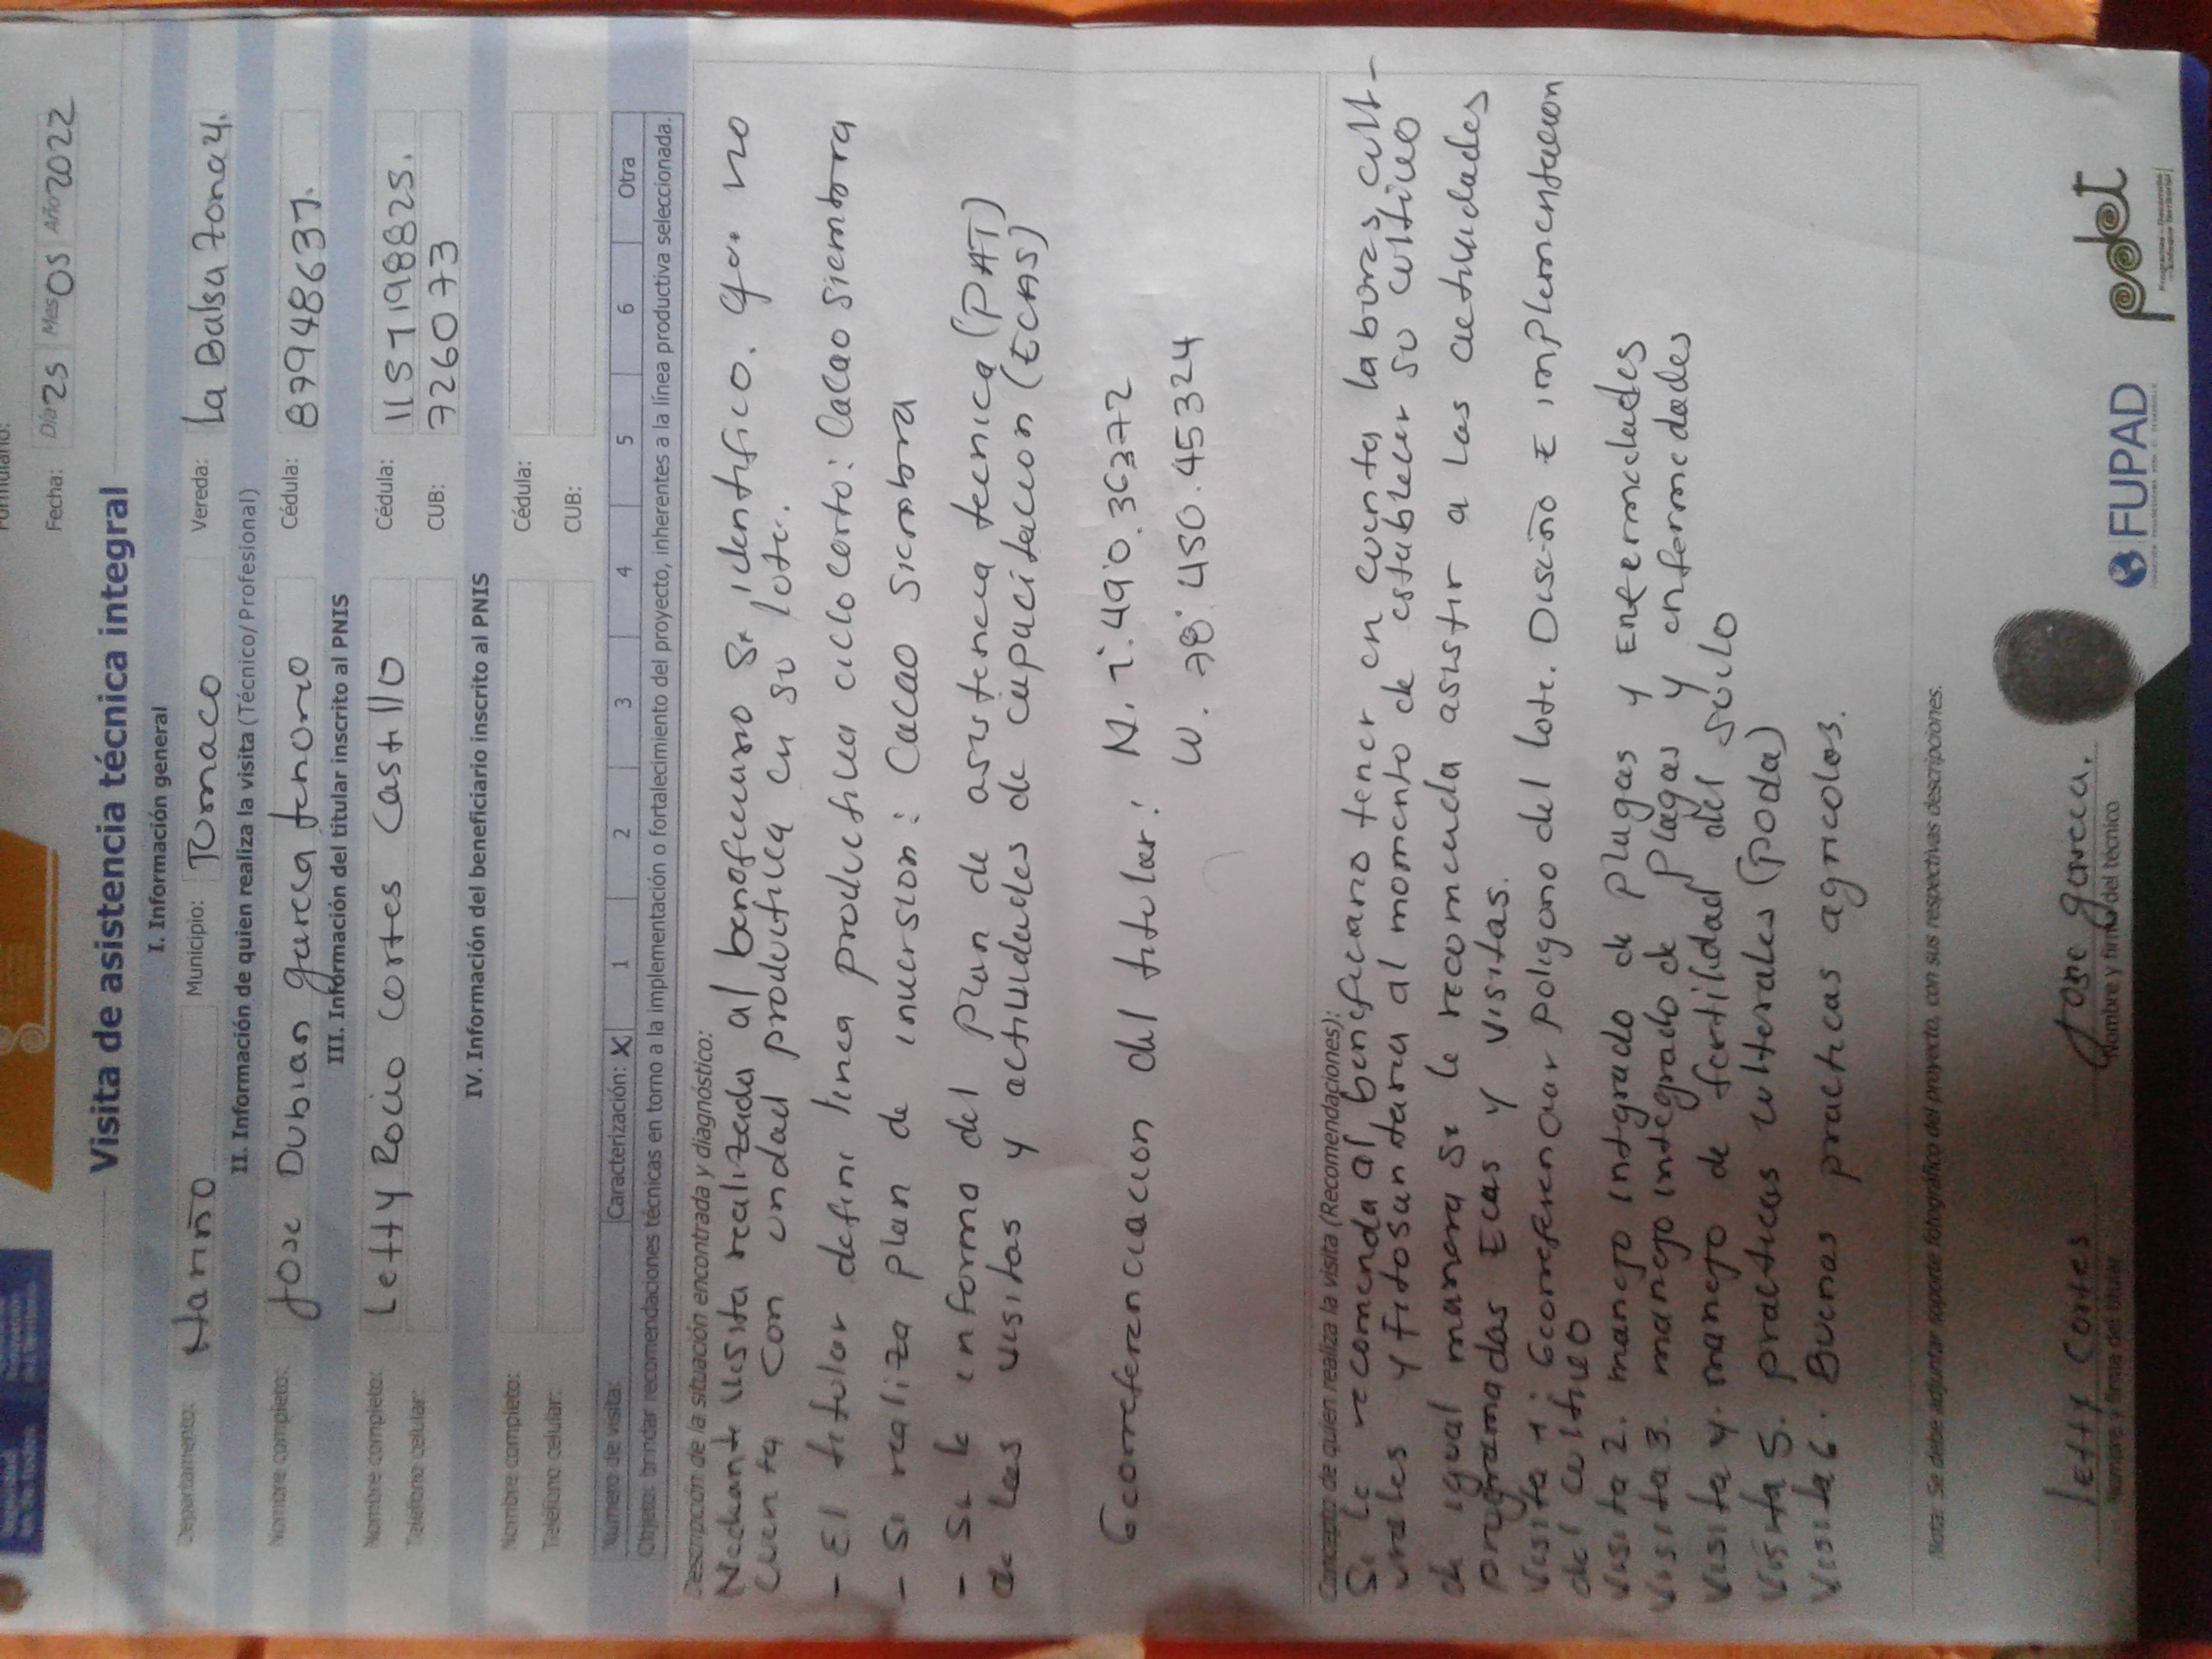 Formulario:
Fecha: Día 25 Mes 05 Año 2022
Visita de asistencia técnica integral
I. Información general
Departamento: Nariño Municipio: Tumaco Vereda: La Balsa Zona 4.
II. Información de quien realiza la visita (Técnico/Profesional)
Nombre completo: Jose Dubian Garcia tenorio Cédula: 87948637.
III. Información del titular inscrito al PNIS
Nombre completo: Letty Rocio Cortes Castillo Cédula: 1157198825.
Teléfono celular: CUB: 726073
IV. Información del beneficiario inscrito al PNIS
Nombre completo: Cédula:
Teléfono celular: CUB:
Número de visita: Caracterización: X 1 2 3 4 5 6 Otra
Objeto: brindar recomendaciones técnicas en torno a la implementación o fortalecimiento del proyecto, inherentes a la línea productiva seleccionada.
Descripción de la situación encontrada y diagnóstico:
Mediante visita realizada al beneficiario Se identifico. que no
Cuenta con unidad productiva en su lote.
- El titular define linea productiva ciclo corto: Cacao Siembra
- Se realiza plan de inversion: Cacao Siembra
- Se le informa del plan de asistencia tecnica (PAT)
de las visitas y actividades de capacitacion (ECAS)
Georreferenciacion del titular: N. 1°.490.36372
W. 78°.450.45324
Concepto de quien realiza la visita (Recomendaciones):
Se le recomenda al beneficiario tener en cuenta labores cult-
urales y fitosanitaria al momento de establecer su cultivo
de igual manera se le recomienda asistir a las actividades
programadas Ecas y visitas.
Visita 1: Georreferenciar poligono del lote. Diseño E implementacion
del cultivo
Visita 2. manejo integrado de plagas y Enfermedades
Visita 3. manejo integrado de plagas y enfermedades
Visita 4. manejo de fertilidad del suelo
Visita 5. practicas culterales (poda)
Visita 6. Buenas practicas agricolas.
Nota: Se debe adjuntar soporte fotográfico del proyecto, con sus respectivas descripciones.
letty Cortes
Nombre y firma del titular
Jose garcia.
Nombre y firma del técnico
FUPAD
pdet